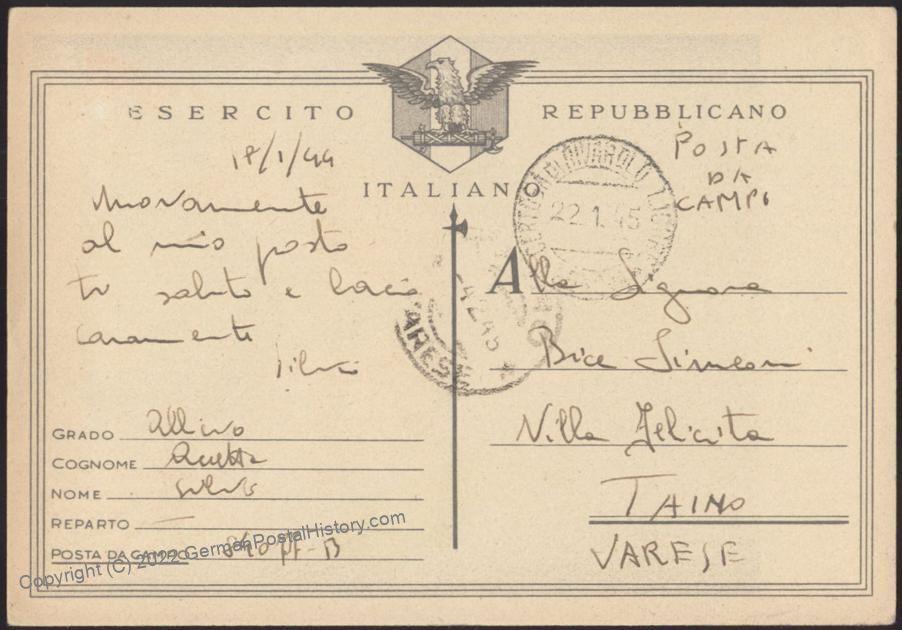 ESERCITO REPUBBLICANO
ITALIANO
18/1/44
Nuovamente
al mio posto
ti saluto e bacio
caramente
Silvio
GRADO Allievo
COGNOME
NOME Silvio
REPARTO —
POSTA DA CAMPO 840 pf - B
POSTA
DA
CAMPO
22.1.45
4.2.45
VARESE
Alla Signora
Bice Simeoni
Villa Felicita
TAINO
VARESE
Copyright (C) 2022 GermanPostalHistory.com